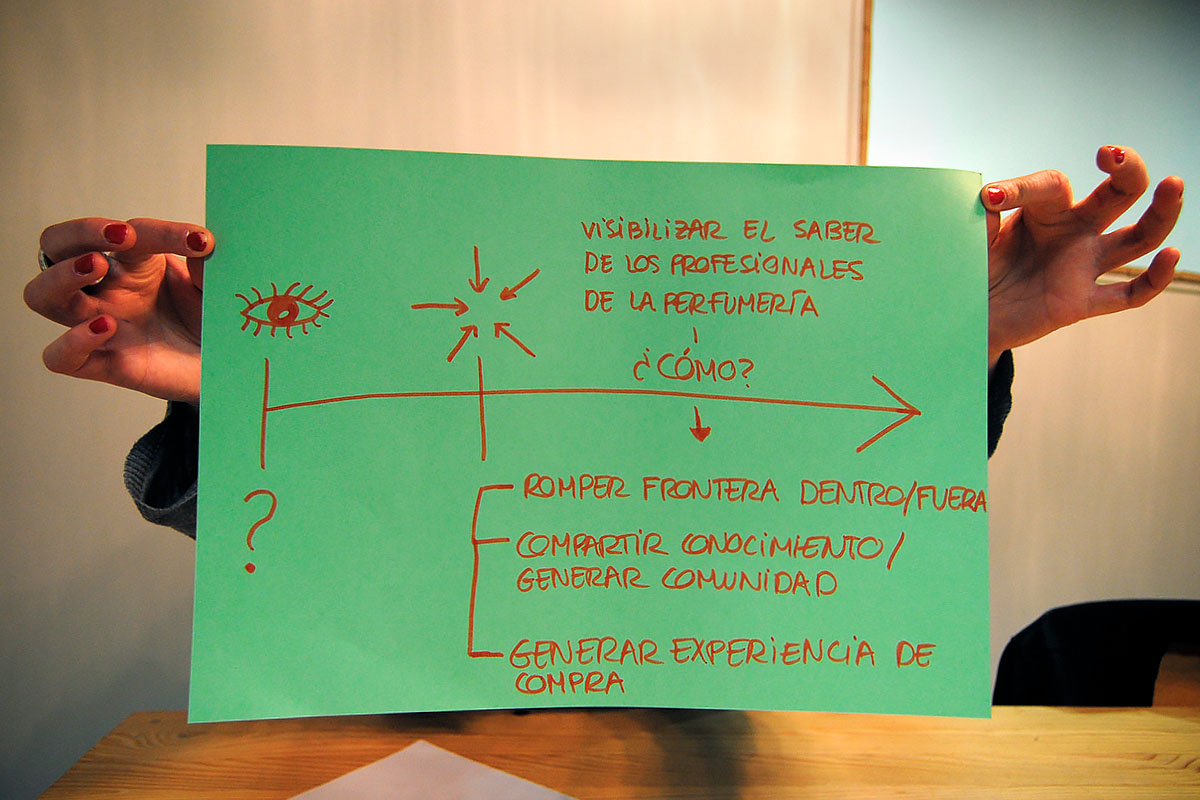 VISIBILIZAR EL SABER
DE LOS PROFESIONALES
DE LA PERFUMERÍA
¿CÓMO?
?
ROMPER FRONTERA DENTRO/FUERA
COMPARTIR CONOCIMIENTO/
GENERAR COMUNIDAD
GENERAR EXPERIENCIA DE
COMPRA